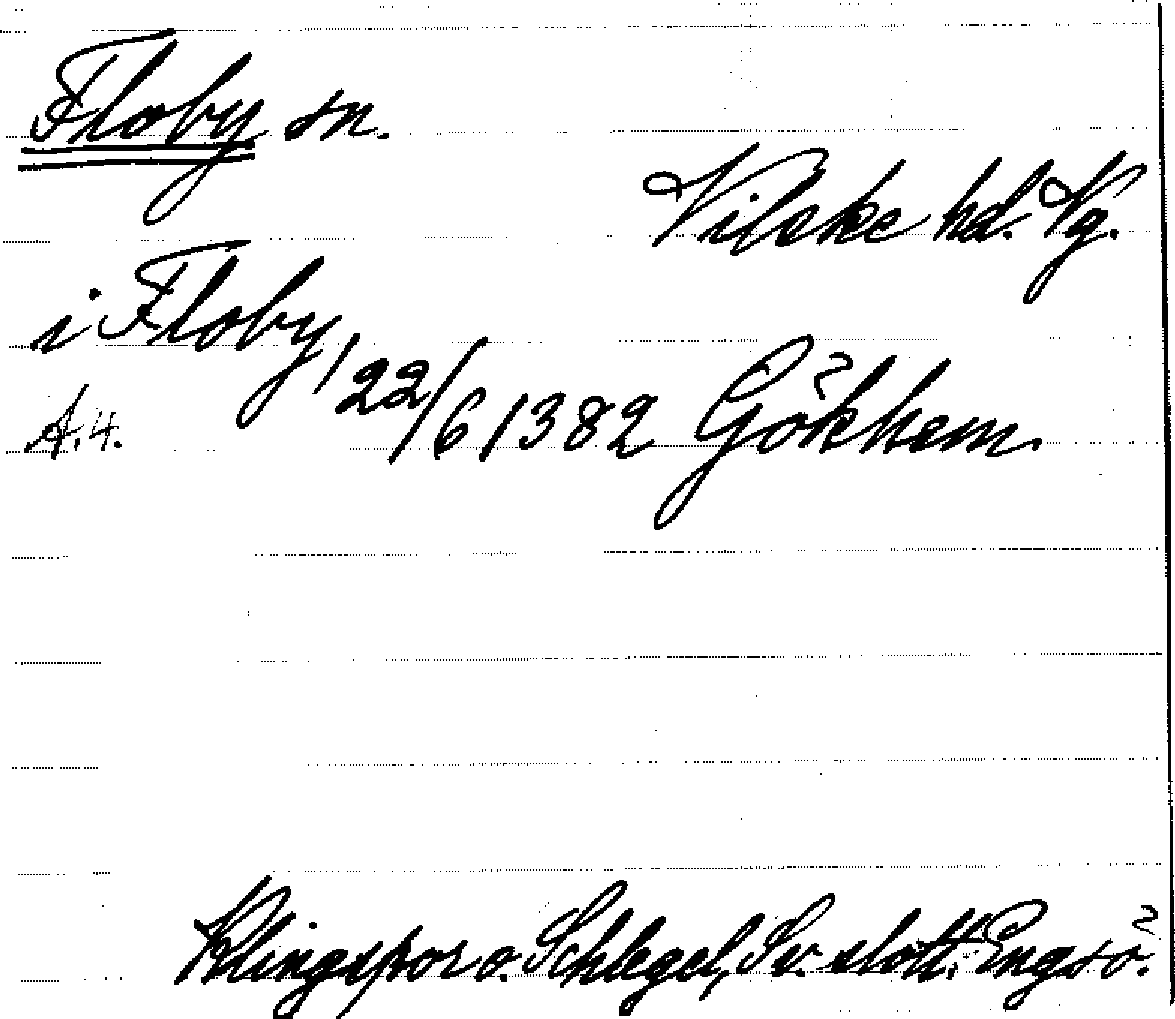 Floby sn.
Vilske hd. Vg.
i Floby, 22/6 1382 Gökhem.
A.4.
Klingspor o. Schlegel, Sv. slott. Engsö.